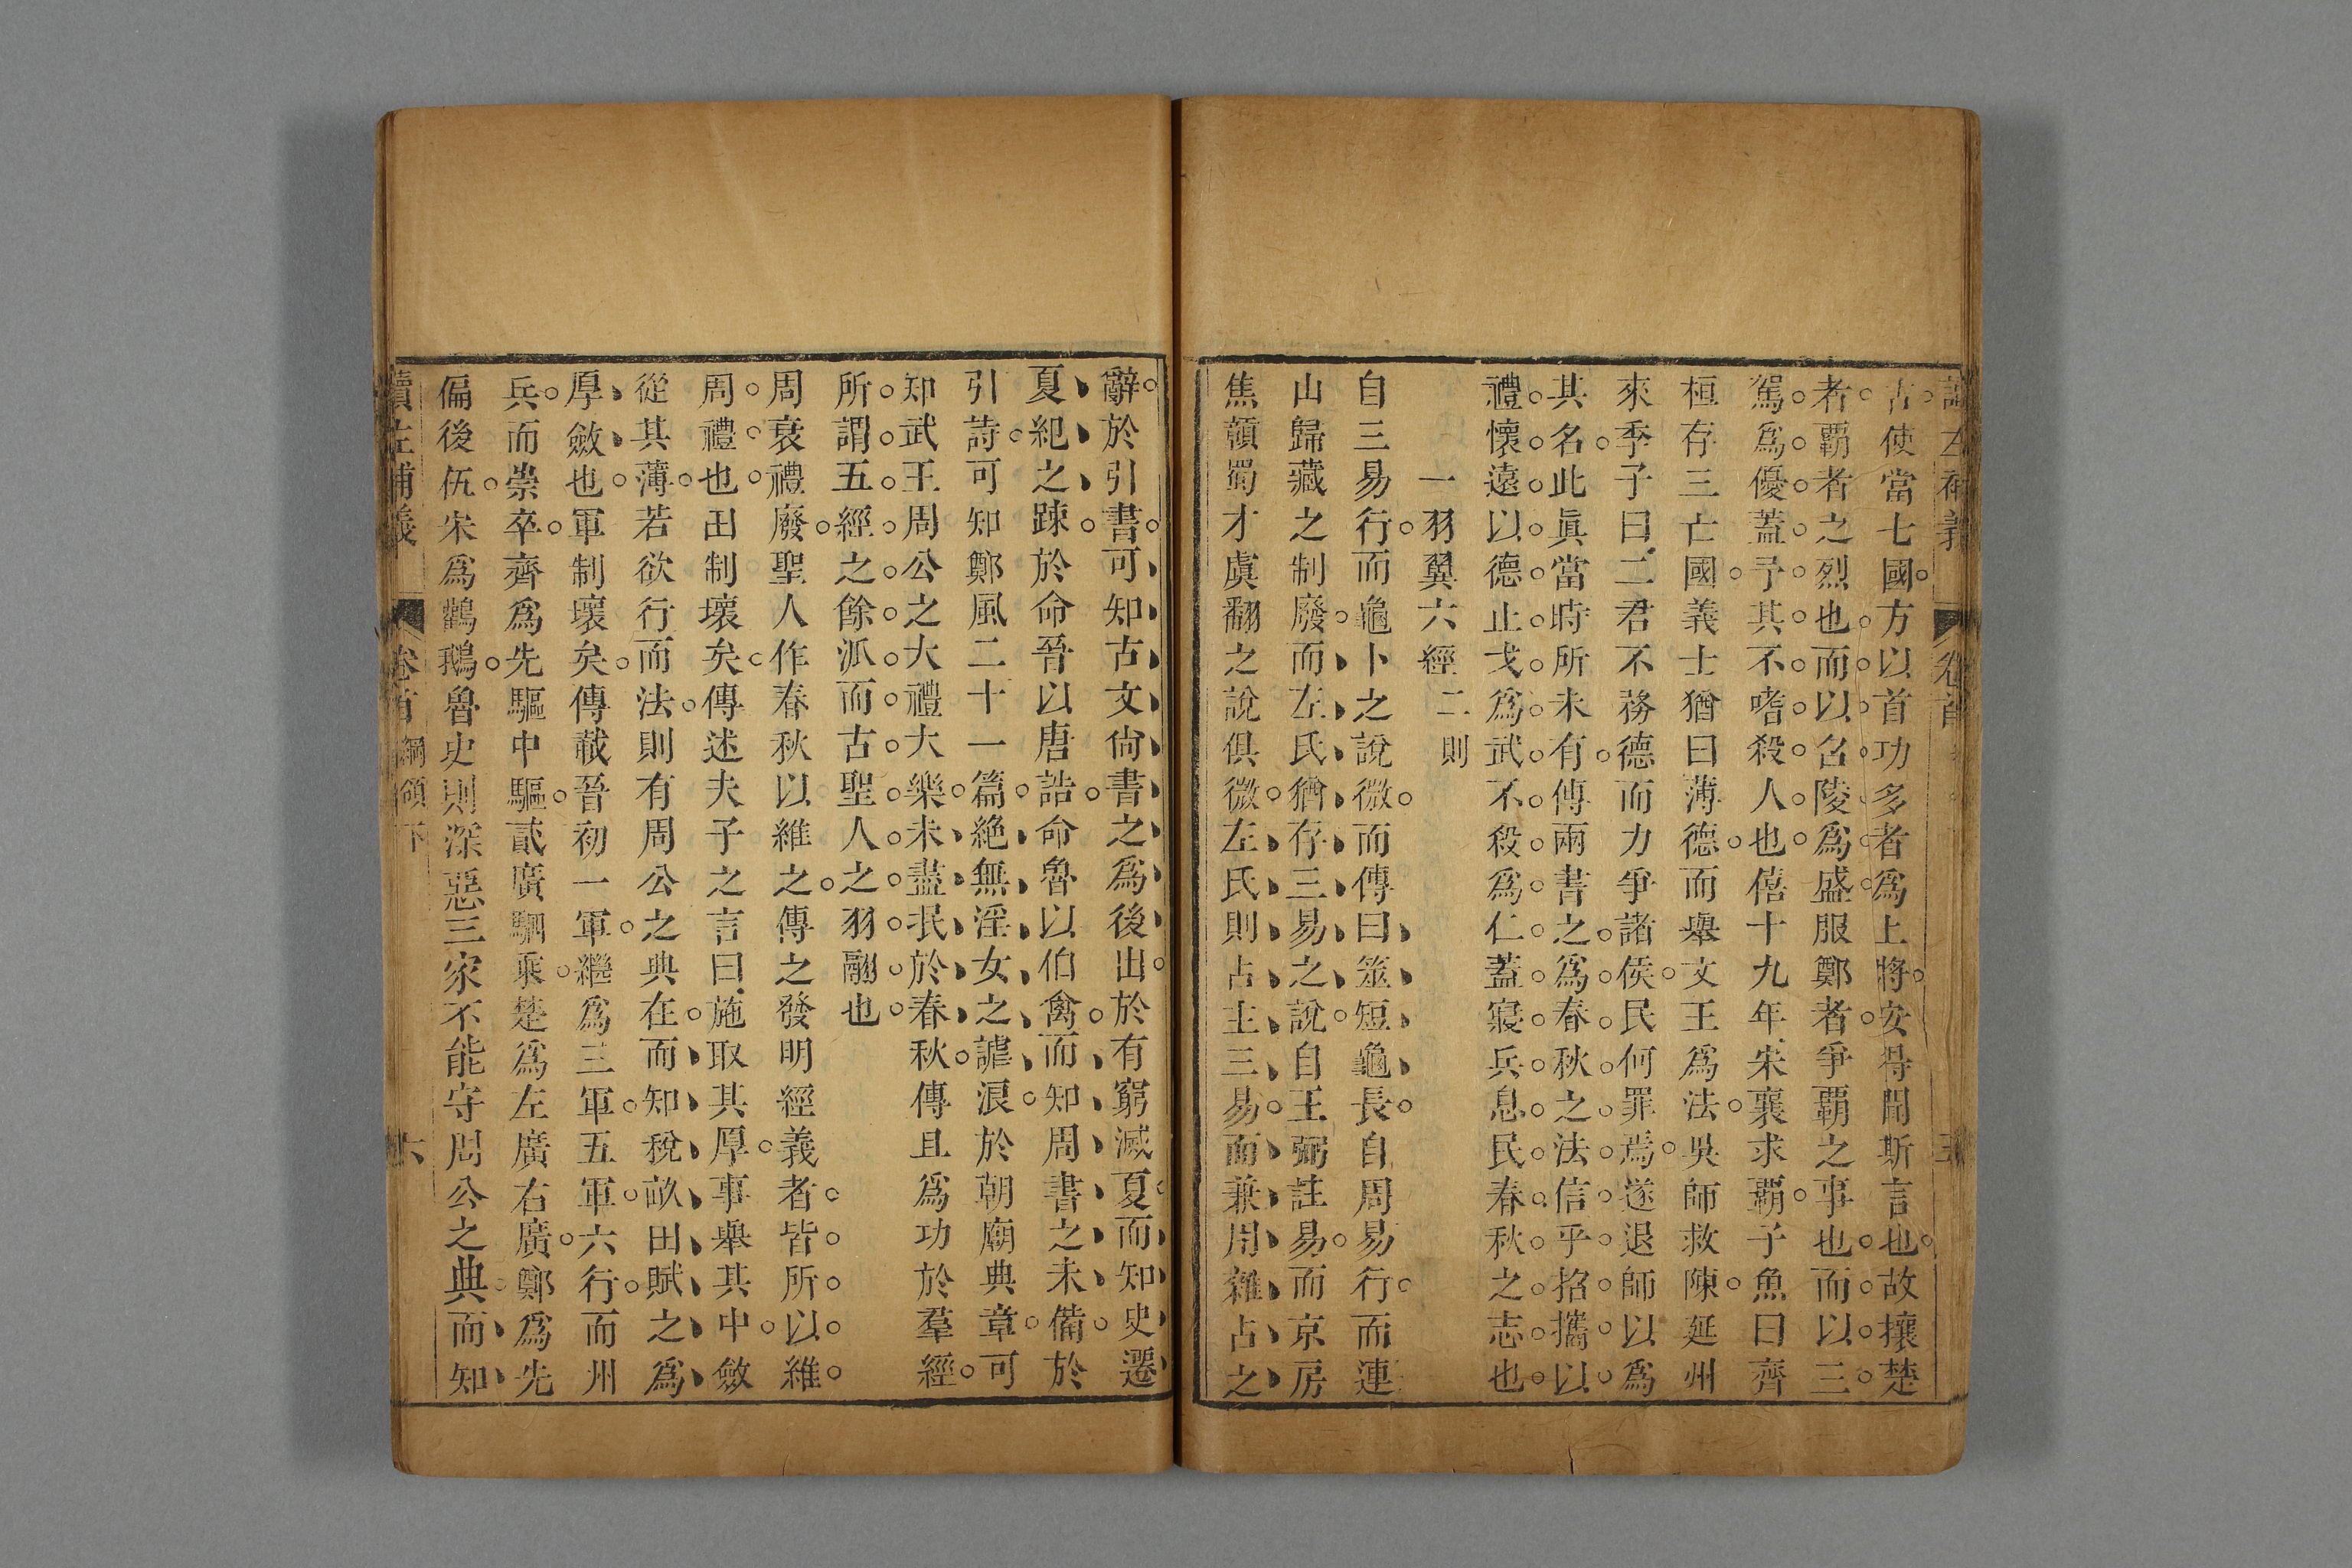 古使當七國方以首功多者爲上將安得聞斯言也故攘楚
者覇者之烈也而以召陵爲盛服鄭者爭覇之事也而以三
駕爲優蓋予其不嗜殺人也僖十九年宋襄求覇子魚曰齊
桓存三亡國義士猶曰薄德而舉文王爲法吳師救陳延州
來季子曰二君不務德而力爭諸侯民何罪焉遂退師以爲
其名此眞當時所未有傳兩書之爲春秋之法信乎招攜以
禮懷遠以德止戈爲武不殺爲仁蓋寢兵息民春秋之志也
一羽翼六經二則
自三易行而龜卜之說微而傳曰筮短龜長自周易行而連
山歸藏之制廢而左氏猶存三易之說自王弼註易而京房
焦贛蜀才虞翻之說俱微左氏則占主三易而兼用雜占之
辭於引書可知古文尙書之爲後出於有窮滅夏而知史遷
夏紀之踈於命晉以唐誥命魯以伯禽而知周書之未備於
引詩可知鄭風二十一篇絶無淫女之謔浪於朝廟典章可
知武王周公之大禮大樂未盡泯於春秋傳且爲功於羣經
所謂五經之餘派而古聖人之羽翮也
周衰禮廢聖人作春秋以維之傳之發明經義者皆所以維
周禮也田制壞矣傳述夫子之言曰施取其厚事舉其中斂
從其薄若欲行而法則有周公之典在而知稅畝田賦之爲
厚斂也軍制壞矣傳載晉初一軍繼爲三軍五軍六行而州
兵而崇卒齊爲先驅中驅貳廣駟乘楚爲左廣右廣鄭爲先
偏後伍宋爲鸛鵝魯史則深惡三家不能守周公之典而知
讀左補義
卷首 綱領下
六